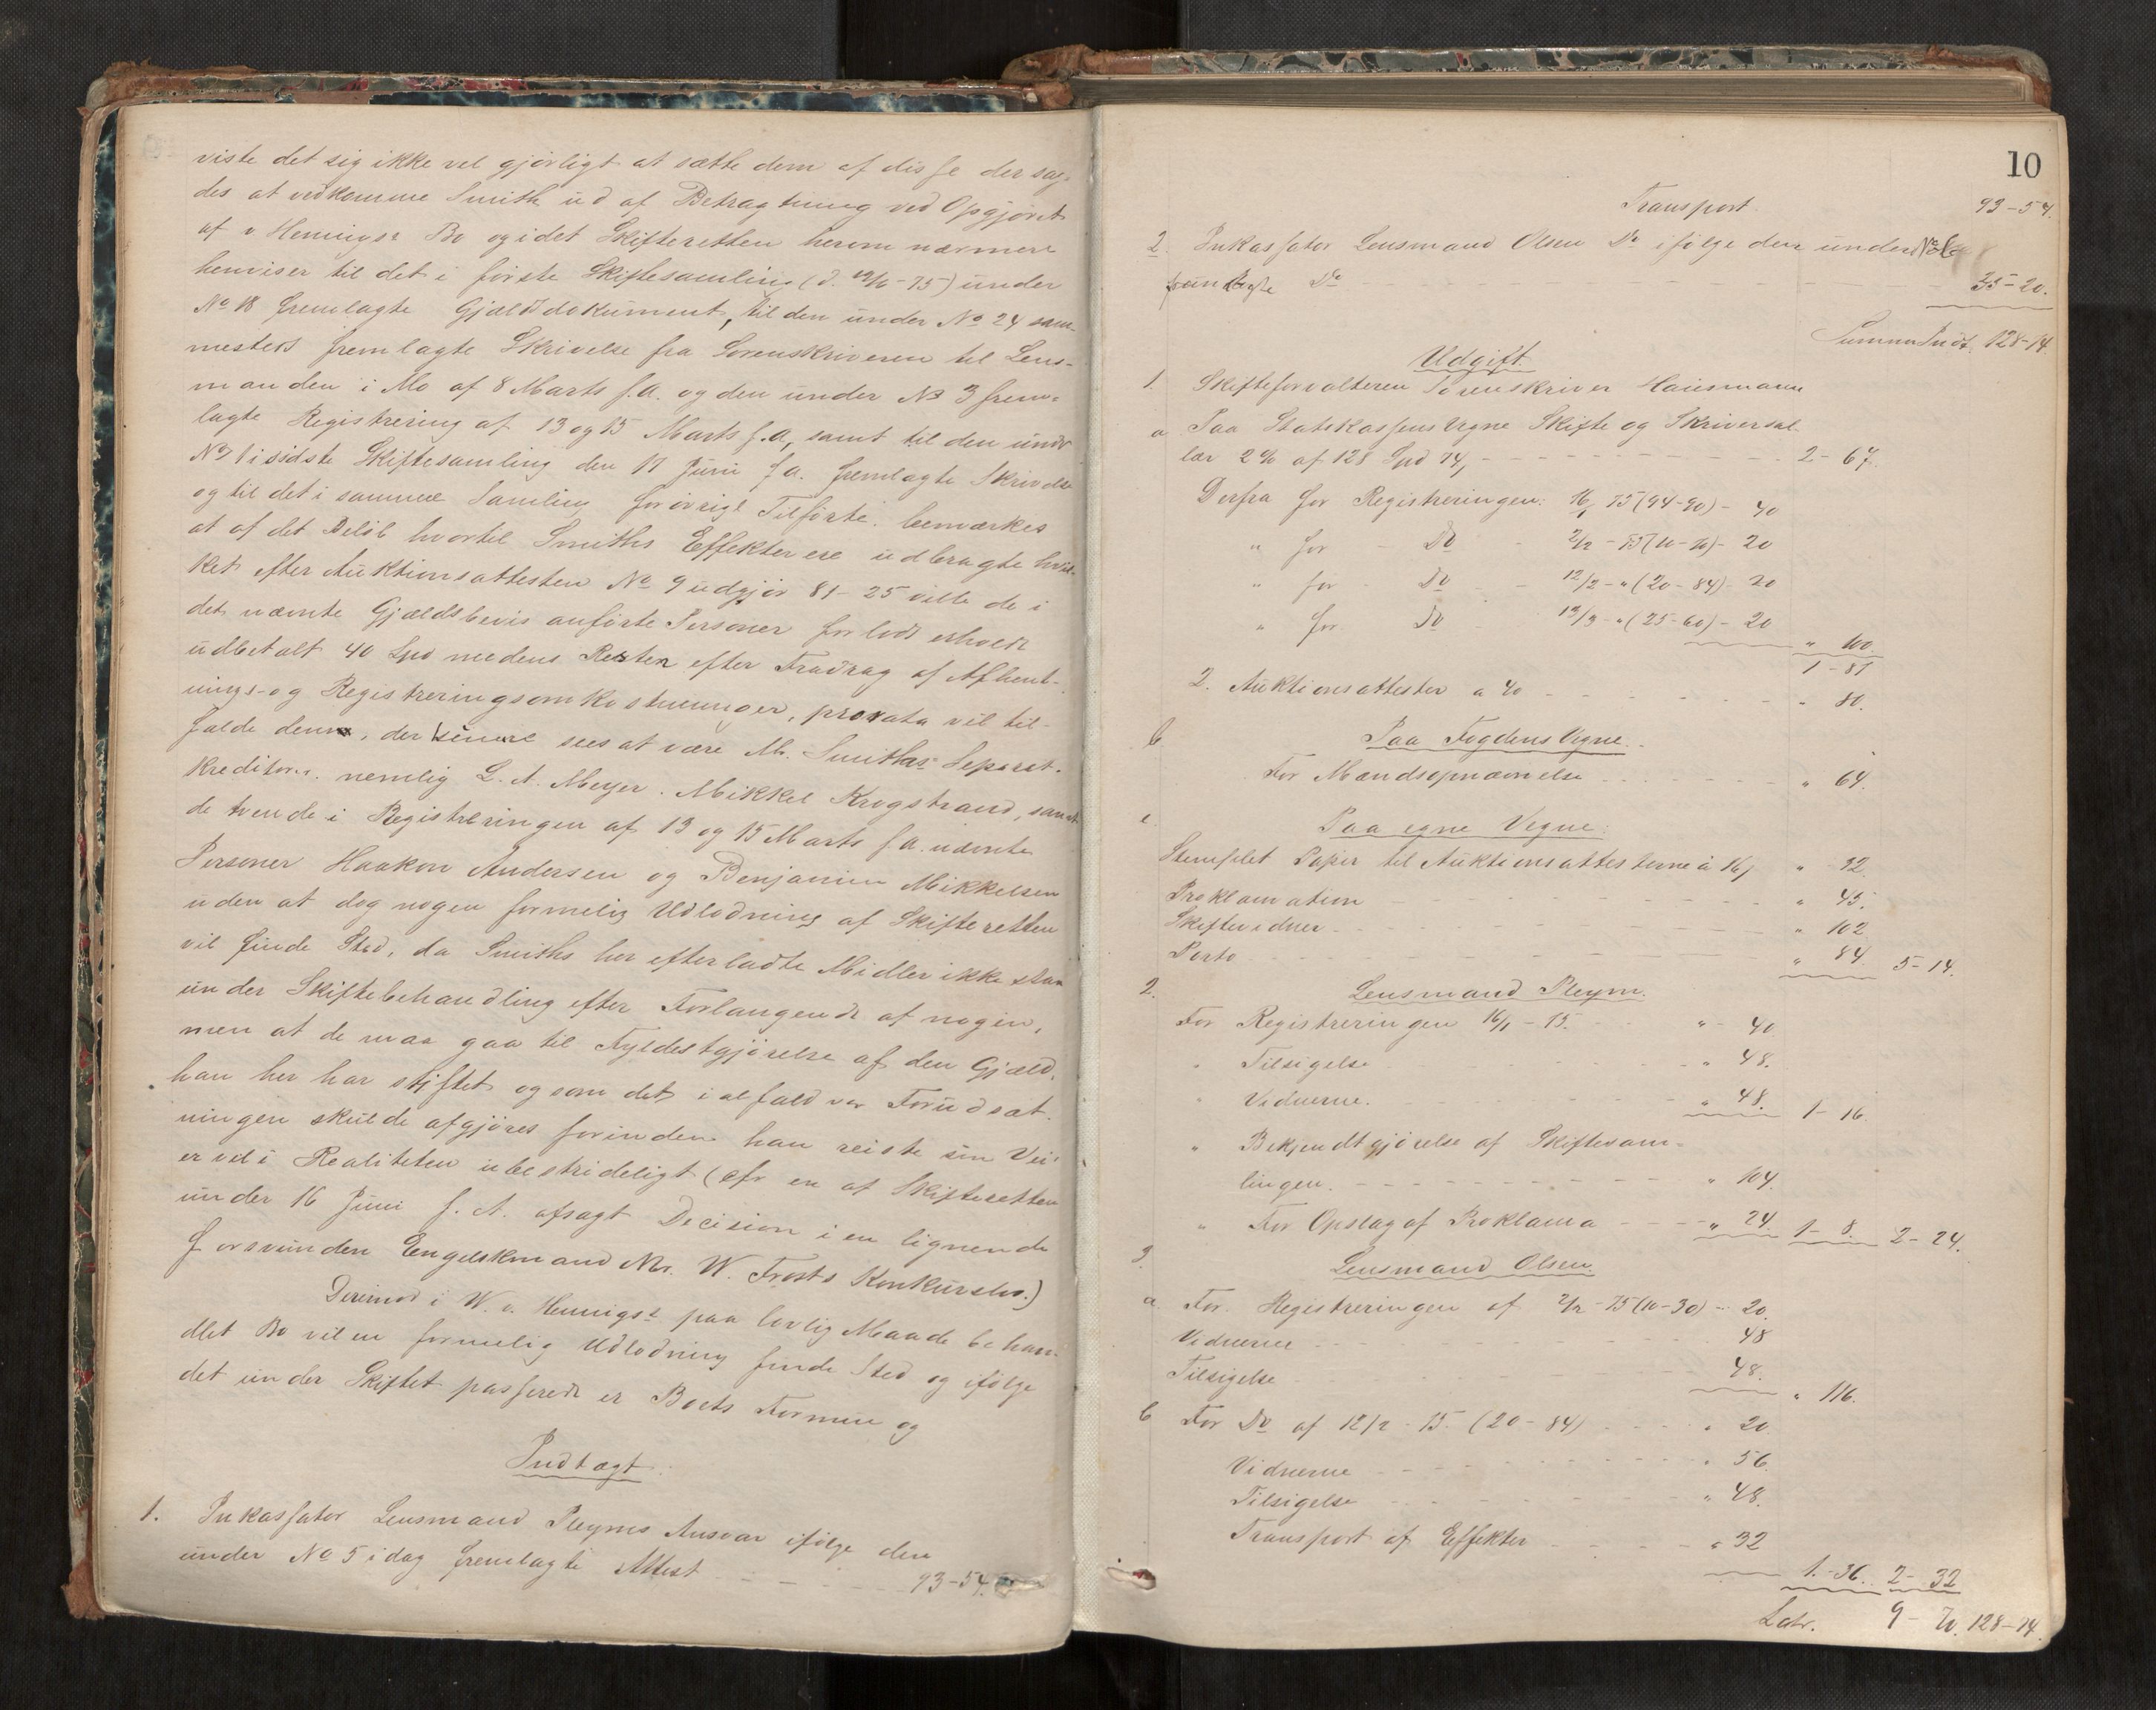 viste det sig ikke vel gjørligt at sætte dem af disse der sag-
des at vedkomme Smith ud af Betragtning ved Opgjøret
af v. Hennigs Bo og idet Skifteretten herom nærmere
henviser til det i første Skiftesamling (d. 19/6-75) under
No 18 fremlagte Gjældsdokument, til den under No 24 sam-
mesteds fremlagte Skrivelse fra Sorenskriveren til Lens-
manden i Mo af 8 Marts f.A. og den under No 3 frem-
lagte Registrering af 13 og 15 Marts f.A., samt til den under
No 1 i sidste Skiftesamling den 11 Juni f.A. fremlagte Skrivelse
og til det i samme Samling forøvrigt Tilførte, bemærkes
at af det Beløb hvortil Smiths Effekter ere udbragte hvil-
ket efter Auktionsattesten No 9 udgjør 81-25 ville de i
det nævnte Gjældsbevis anførte Personer forlods erholde
udbetalt 40 Spd medens Resten efter Fradrag af Afhent-
nings- og Registreringsomkostninger, prorata vil til-
falde dem, der senere sees at være M. Smiths Separat-
kreditorer, nemlig L. A. Meyer, Mikkel Krogstrand, samt
de tvende i Registreringen af 13 og 15 Marts f.A. nævnte
Personer Haakon Andersen og Benjamin Mikkelsen
uden at dog nogen formelig Udlodning af Skifteretten
vil finde Sted, da Smiths her efterladte Midler ikke staa
under Skiftebehandling efter Forlangende af nogen,
men at de maa gaa til Fyldestgjørelse af den Gjæld,
han her har stiftet og som det i alfald var Forudsæt-
ningen skulde afgjøres forinden han reiste sin Vei
er vel i Realiteten ubestrideligt (cfr en af Skifteretten
under 16 Juni f. A. afsagt Decision i en lignende
forsvunden Engelskmand Mr. W. Frosts Konkursbo.)
Derimod i W. v. Hennigs paa lovlig Maade behan-
dlet Bo vil en formelig Udlodning finde Sted og ifølge
det under Skiftet passerede er Boets Formue og
Indtægt.
1. Inkassator Lensmand Pleyms Ansvar ifølge den
under No 5 idag fremlagte Attest 93-54.
10
Transport. 93-54.
2. Inkassator Lensmand Olsen Do ifølge den under No 6
fremlagte Do 35-20.
Summa Indt. 128-74.
Udgift.
1. Skifteforvalteren Sorenskriver Hausmann
a Paa Statskassens Vegne Skifte og Skriversal-
lær 2% af 128 Spd 74, 2-67.
Derfra for Registreringen: 16/1 75 (94-90) - 40
" for Do 2/2 - 75 (10-30) - 20
" for Do 12/2 - " (20-84) - 20
" for Do 13/3 - " (25-60) - 20
" 100.
1-87
2. Auktionsattester a 40 " 80.
b. Paa Fogdens Vegne.
For Mandsopnævnelse " 64.
c Paa egne Vegne:
Stemplet Papir til Auktionsattesterne à 16 " 32.
Proklamation " 45.
Skiftevidner " 102
Porto " 84. 5-14.
2. Lensmand Pleym.
For Registreringen 16/1-75. " - 40
" Tilsigelse " 48.
" Vidnerne. " 48. 1-16.
" Bekjendtgjørelse af Skiftesam-
lingen. " 104.
" For Opslag af Proklama " 24. 1-8. 2-24.
3. Lensmand Olsen.
a. For Registreringen af 2/2-75 (10-30) 20.
Vidnerne 48
Tilsigelse 48.
" 116.
b For Do af 12/2-75. (20-84) " 20
Vidnerne " 56.
Tilsigelse " 48.
Transport af Effekter " 32
1.-36. 2-32
Latr. 9-70. 128-74.